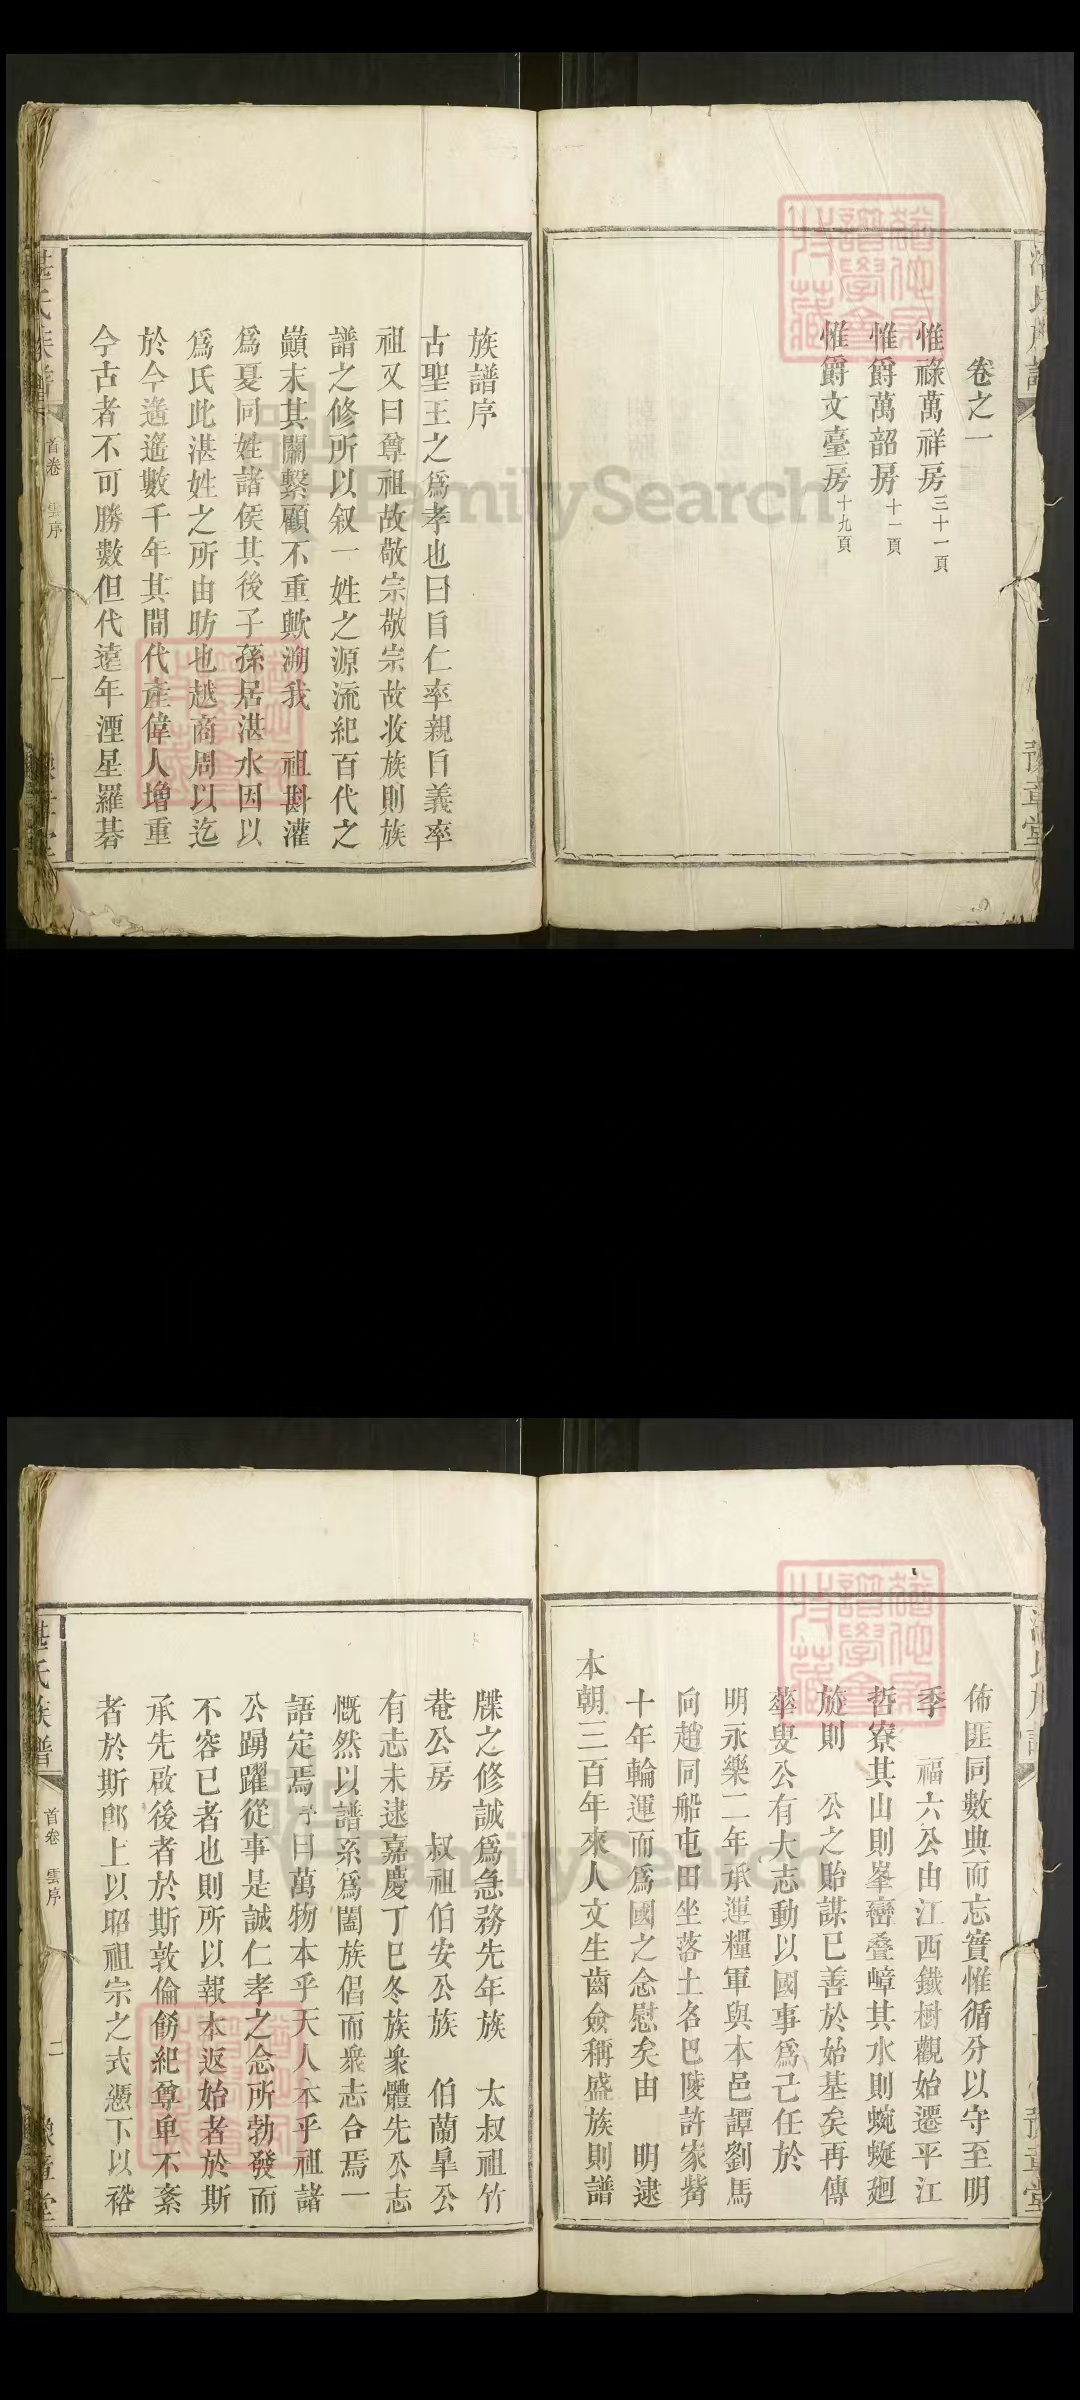 卷之一
惟祿萬祥房三十一頁
惟爵萬韶房十一頁
惟爵文臺房十九頁
豫章堂
族譜序
古聖王之爲孝也曰自仁率親自義率
祖又曰尊祖故敬宗敬宗故收族則族
譜之修所以叙一姓之源流紀百代之
巔末其關繫顧不重歟溯我　祖斟灌
爲夏同姓諸侯其後子孫居湛水因以
爲氏此湛姓之所由昉也越商周以迄
於今遙遙數千年其間代產偉人增重
今古者不可勝數但代遠年湮星羅碁
湛氏族譜
首卷　雲序
一
FamilySearch
佈匪同數典而忘實惟循分以守至明
季　福六公由江西鐵樹觀始遷平江
哲寮其山則峯巒叠嶂其水則蜿蜒廻
旋則　公之貽謀已善於始基矣再傳
華叟公有大志動以國事爲己任於
明永樂二年承運糧軍與本邑譚劉馬
向趙同船屯田坐落土名巴陵許家嘴
十年輪運而爲國之念慰矣由　明逮
本朝三百年來人文生齒僉稱盛族則譜
豫章堂
牒之修誠爲急務先年族　太叔祖竹
菴公房　叔祖伯安公族　伯蘭臯公
有志未逮嘉慶丁巳冬族衆體先公志
慨然以譜系爲闔族倡而衆志合焉一
語定焉予曰萬物本乎天人本乎祖諸
公踴躍從事是誠仁孝之念所勃發而
不容已者也則所以報本返始者於斯
承先啟後者於斯敦倫飭紀尊卑不紊
者於斯郎上以昭祖宗之式憑下以裕
湛氏族譜
首卷　雲序
二
豫章堂
FamilySearch